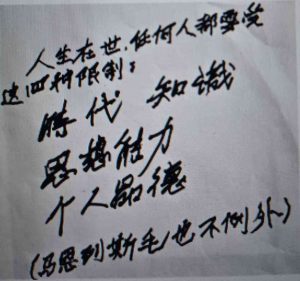 人生在世,任何人都要受
这四种限制:
時代 知識
思想能力
个人品德
(马恩列斯毛也不例外)